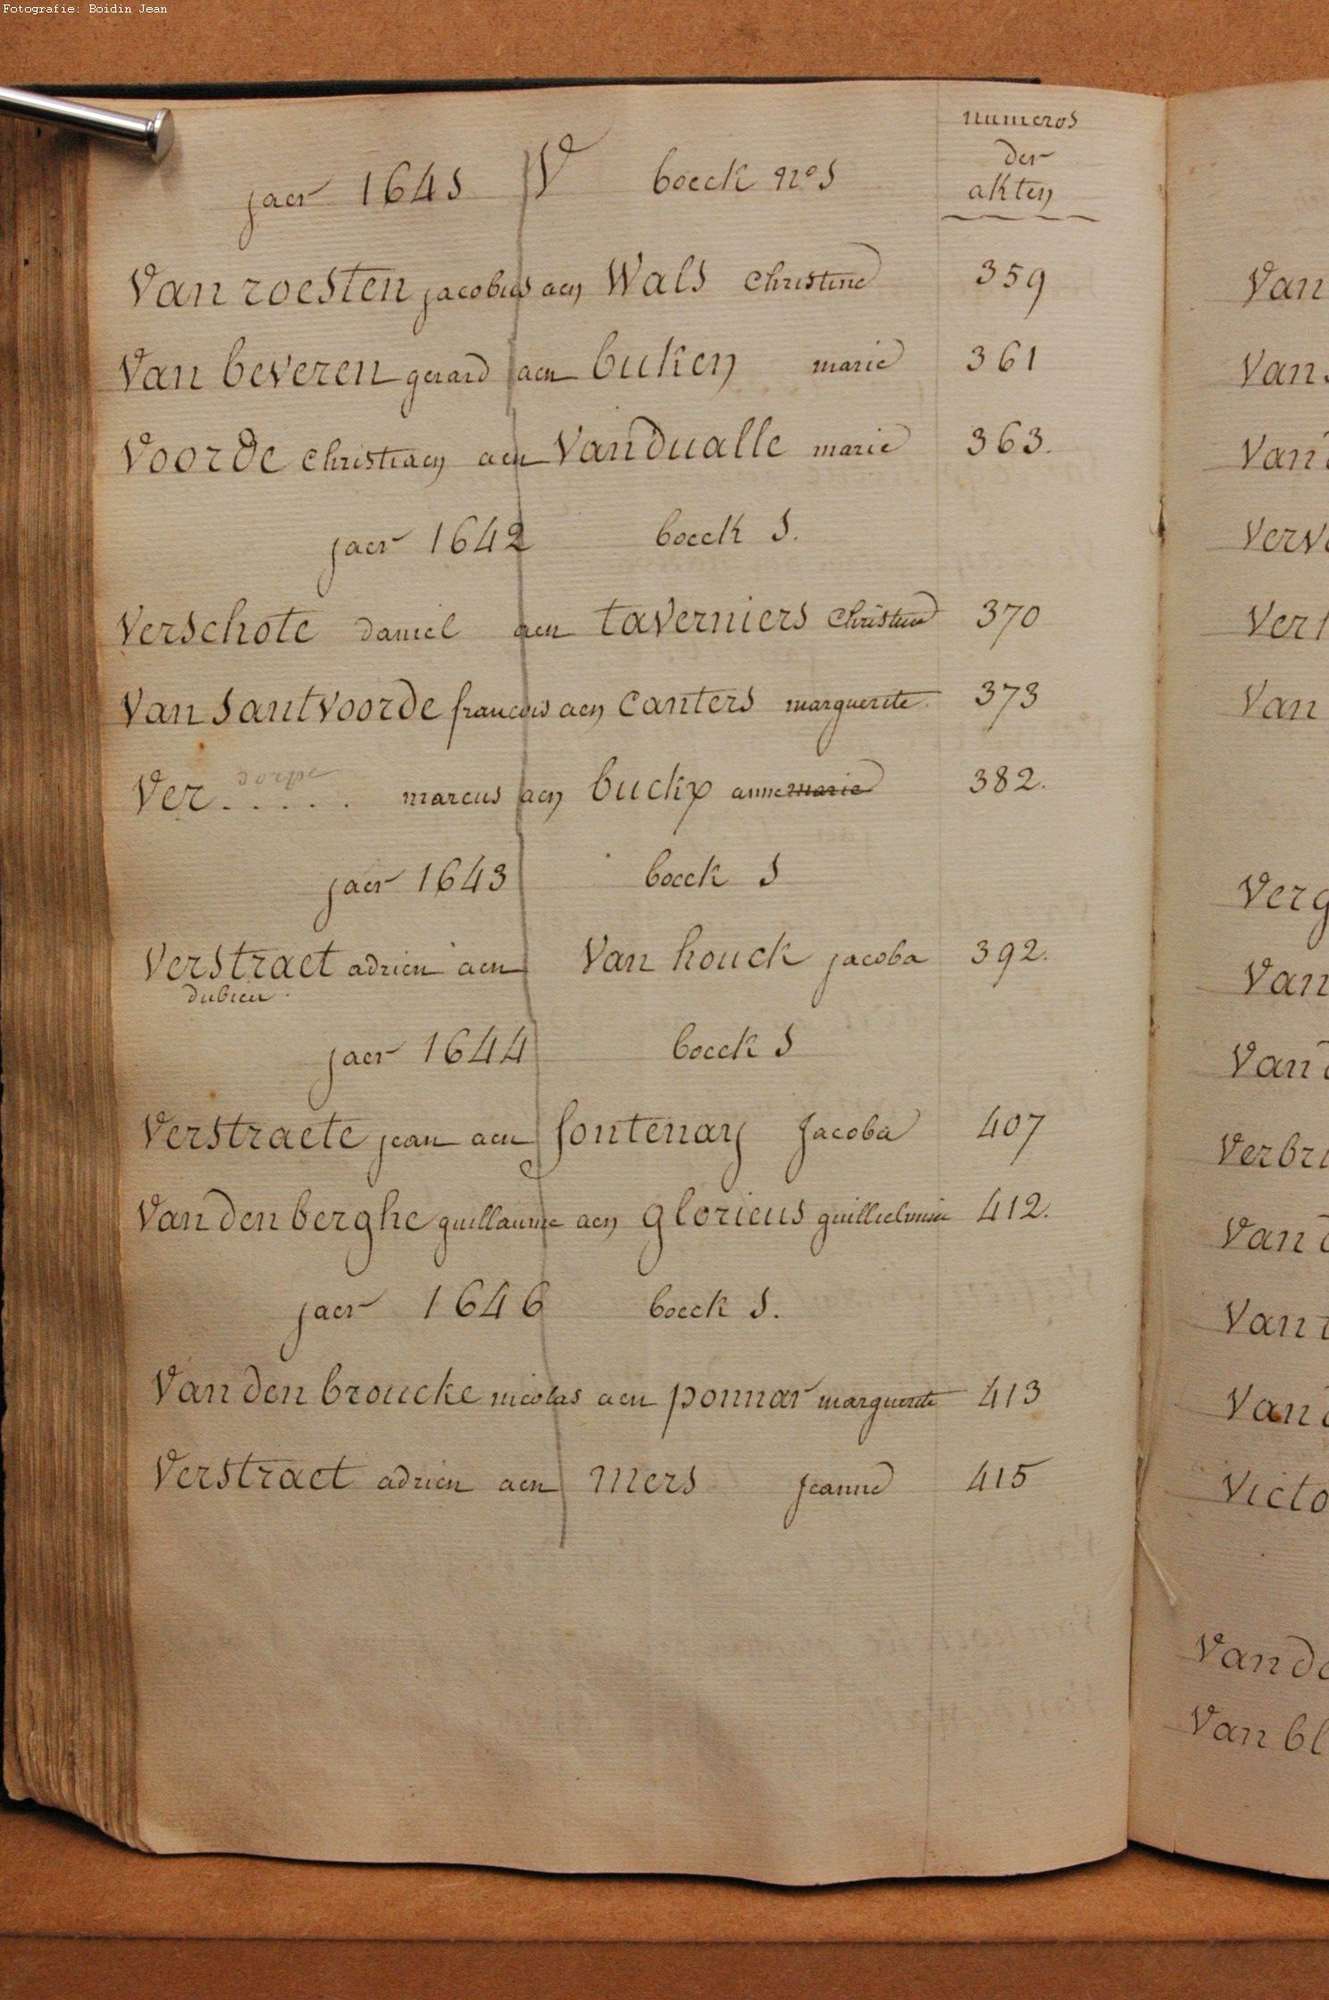 Fotografie: Boidin Jean
numeros
der
akten
jaer 1645 V boeck n° 5
Van roesten jacobus aen Wals Christine 359
Van beveren gerard aen buken marie 361
Voorde Christiaen aen Vandualle marie 363.
jaer 1642 boeck 5.
Verschote daniel aen taverniers Christine 370
Van santvoorde francois aen Canters marguerite 373
dorpe
Ver . . . . . marcus aen buckx anne marie 382.
jaer 1643 boeck 5
Verstraet adrien aen Van houck jacoba 392.
dubieu
jaer 1644 boeck 5
Verstraete jean aen fontenay Jacoba 407
Van den berghe guillaume aen glorieus 412.
jaer 1646 boeck 5.
Van den broucke nicolas aen ponnar marguerite 413
Verstraet adrien aen mers Jeanne 415
Van
Van
Van
Verv
Ver
Van
Verg
Van
Van
Verbr
Van
Van
Van
Victo
Van de
Van bl